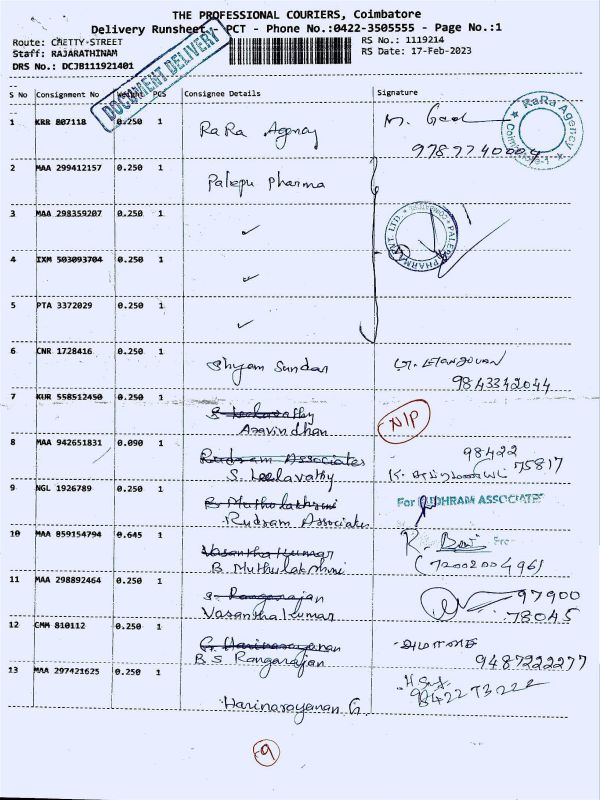 THE PROFESSIONAL COURIERS, Coimbatore
Delivery Runsheet - PCT - Phone No.:0422-3505555 - Page No.:1
Route: CHETTY-STREET
RS No.: 1119214
Staff: RAJARATHINAM
RS Date: 17-Feb-2023
DRS No.: DCJB111921401
DOCUMENT DELIVERY
S No Consignment No Weight PCS Consignee Details Signature
1 KRR 807118 0.250 1 RaRa Agency
RaRa Agency
2 MAA 299412157 0.250 1 Palepu Pharma
3 MAA 298359207 0.250 1 ✓
4 IXM 503093704 0.250 1 ✓
5 PTA 3372029 0.250 1 ✓
6 CNR 1728416 0.250 1 Shyam Sundar
9843342044
7 KUR 558512450 0.250 1
Aravindhan N/P
8 MAA 942651831 0.090 1 Rudram Associates
S. Leelavathy
98422
75817
9 NGL 1926789 0.250 1 B Muthulakhmi
Rudram Associates
For RUDHRAM ASSOCIATES
10 MAA 859154794 0.645 1 Vasantha Kumar
B. Muthulakhmi
11 MAA 298892464 0.250 1
Vasantha Kumar
97900
78045
12 CMM 810112 0.250 1 G. Harinarayanan
B.S Rangarajan
9487222277
13 MAA 297421625 0.250 1
Harinarayanan G.
9